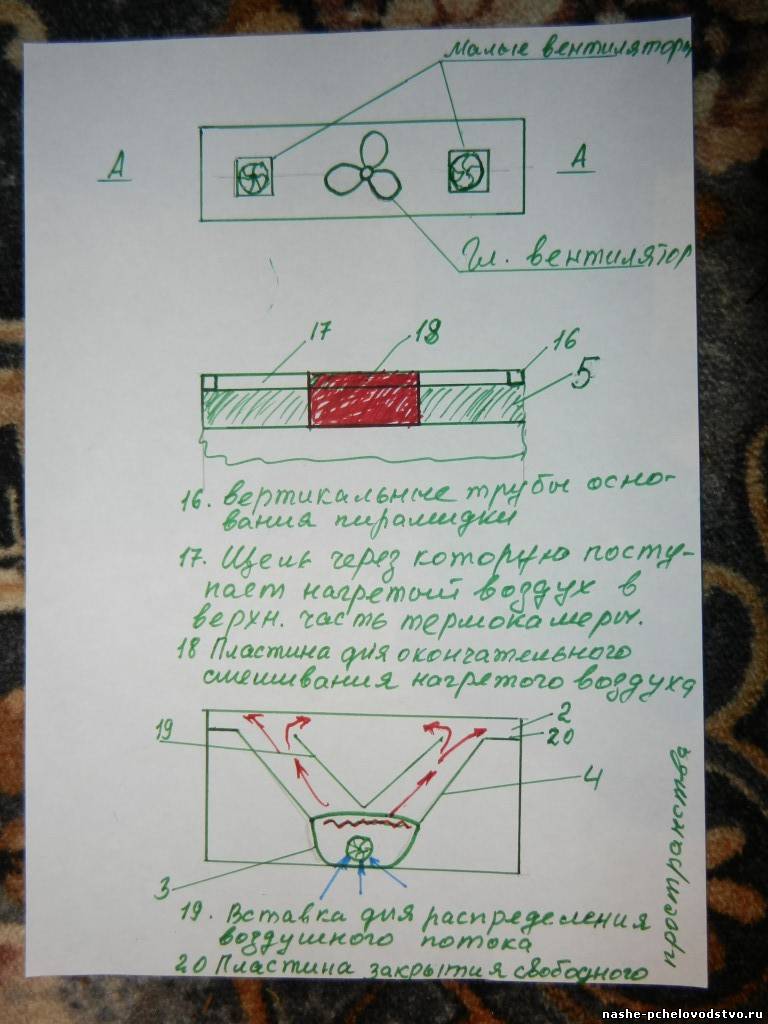 Малые вентиляторы
А
А
Гл. вентилятор
17
18
16
5
16. вертикальные трубы осно-
вания пирамидки
17. Щель через которую посту-
пает нагретый воздух в
верхн. часть термокамеры.
18 Пластина для окончательного
смешивания нагретого воздуха
2
19
20
4
3
19. Вставка для распределения
воздушного потока
20 Пластина закрытия свободного
пространства
nashe-pchelovodstvo.ru